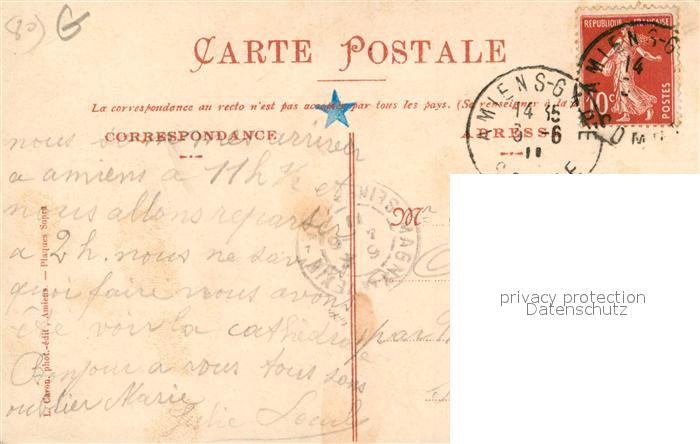 G
CARTE POSTALE
La correspondance au recto n'est pas acceptée par tous les pays. (Se renseigner à la
CORRESPONDANCE
ADRESSE
REPUBLIQUE FRANÇAISE
10c
POSTES
AMIENS-G
14 35
6-6
11
SOMME
AMIENS-G
14
nous arriver
a amiens à 11h ½ et
nous allons repartir
a 2h. nous ne savi
quoi faire nous avons
été voir la cathédrale
Bonjour a vous tous sans
oublier Marie
Julie
M
par
MAGNY
SEINE
L. Caron, phot.-édit., Amiens. — Plaques Sopra
privacy protection
Datenschutz